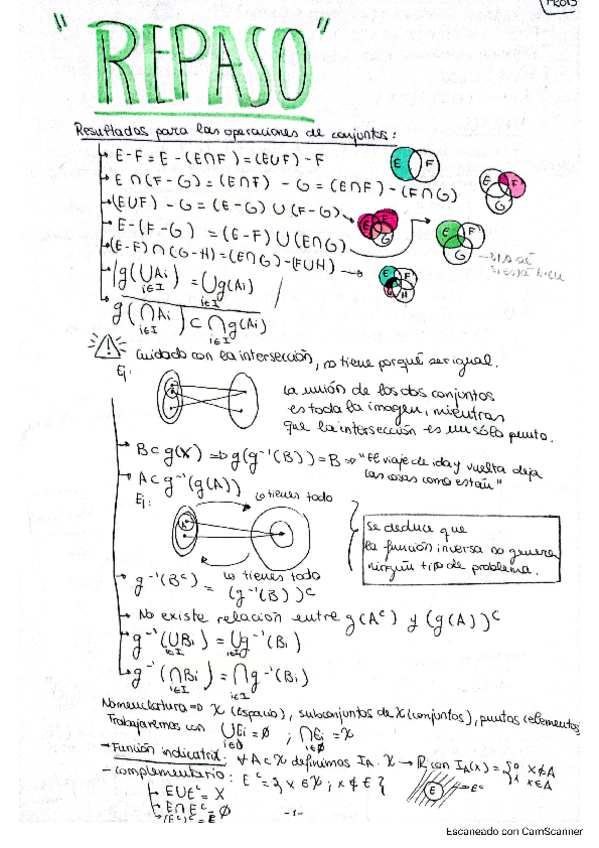 "REPASO"
Resultados para las operaciones de conjuntos:
E-F = E-(E∩F) = (E∪F)-F
E F
E∩(F-G) = (E∩F) - G = (E∩F) - (F∩G)
E F
G
(E∪F) - G = (E-G) ∪ (F-G)
E F
G
E-(F-G) = (E-F) ∪ (E∩G)
E F
G
(E-F)∩(G-H) = (E∩G)-(F∪H)
E F
G H
g(∪Ai) = ∪g(Ai)
i∈I i∈I
g(∩Ai) ⊂ ∩g(Ai)
i∈I i∈I
Cuidado con la intersección, no tiene porqué ser igual.
Ej:
La unión de los dos conjuntos
es toda la imagen, mientras
que la intersección es un sólo punto.
B⊂g(X) ⇒ g(g⁻¹(B)) = B ⇒ "El viaje de ida y vuelta deja
las cosas como están"
A⊂g⁻¹(g(A))
Ej:
lo tienes todo
A
lo tienes todo
Se deduce que
la función inversa no genera
ningún tipo de problema.
g⁻¹(Bᶜ) = (g⁻¹(B))ᶜ
No existe relación entre g(Aᶜ) y (g(A))ᶜ
g⁻¹(∪Bi) = ∪g⁻¹(Bi)
i∈I i∈I
g⁻¹(∩Bi) = ∩g⁻¹(Bi)
i∈I i∈I
Nomenclatura ⇒ X (Espacio), subconjuntos de X (conjuntos), puntos (elementos)
Trabajaremos con ∪Ei = ∅ ; ∩Ei = X
i∈∅ i∈∅
- Función indicatriz: ∀A⊂X definimos I_A: X → R con I_A(x) = {0 x∉A
1 x∈A
- complementario: Eᶜ = {x∈X; x∉E}
E Eᶜ
E∪Eᶜ = X
E∩Eᶜ = ∅
(Eᶜ)ᶜ = E
-1-
Escaneado con CamScanner